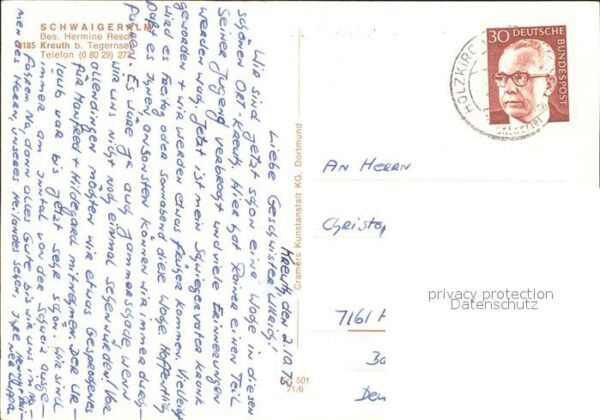 SCHWAIGERALM
Bes. Hermine Resch
8185 Kreuth b. Tegernsee
Telefon (0 80 29) 272
Kreuth den 2.10.73
Liebe Geschwister
Wir sind jetzt schon eine Woche in diesen
schönen Ort-Kreuth. Hier hat Rainer einen Teil
Seiner Jugend verbracht und viele Erinnerungen
werden wach. Jetzt ist mein Schwiegervater krank
geworden + wir werden etwas früher kommen. Vielleicht
wird es Freitag oder Sonnabend diese Woche. Hoffentlich
paßt es Ihnen, ansonsten können wir immer durch-
fahren. Es wäre ja auch jammerschade, wenn
wir uns nicht noch einmal sehen würden! Vor
allendingen möchten wir etwas Gesprochenes
für Manfred + Hildegard mitnehmen. Der Ur-
laub war bis jetzt sehr schön. Wir sind
immer am Inntal von der Schweiz aus ge-
fahren. Nu dann alles Gute bis wir uns im Na-
men des Herrn, unseres Heilandes sehen, Ihre
Cramers Kunstanstalt KG, Dortmund
501
71/6
HOLZKIRCH
30 DEUTSCHE
BUNDESPOST
AN HERRN
Christop
7161
privacy protection
Datenschutz